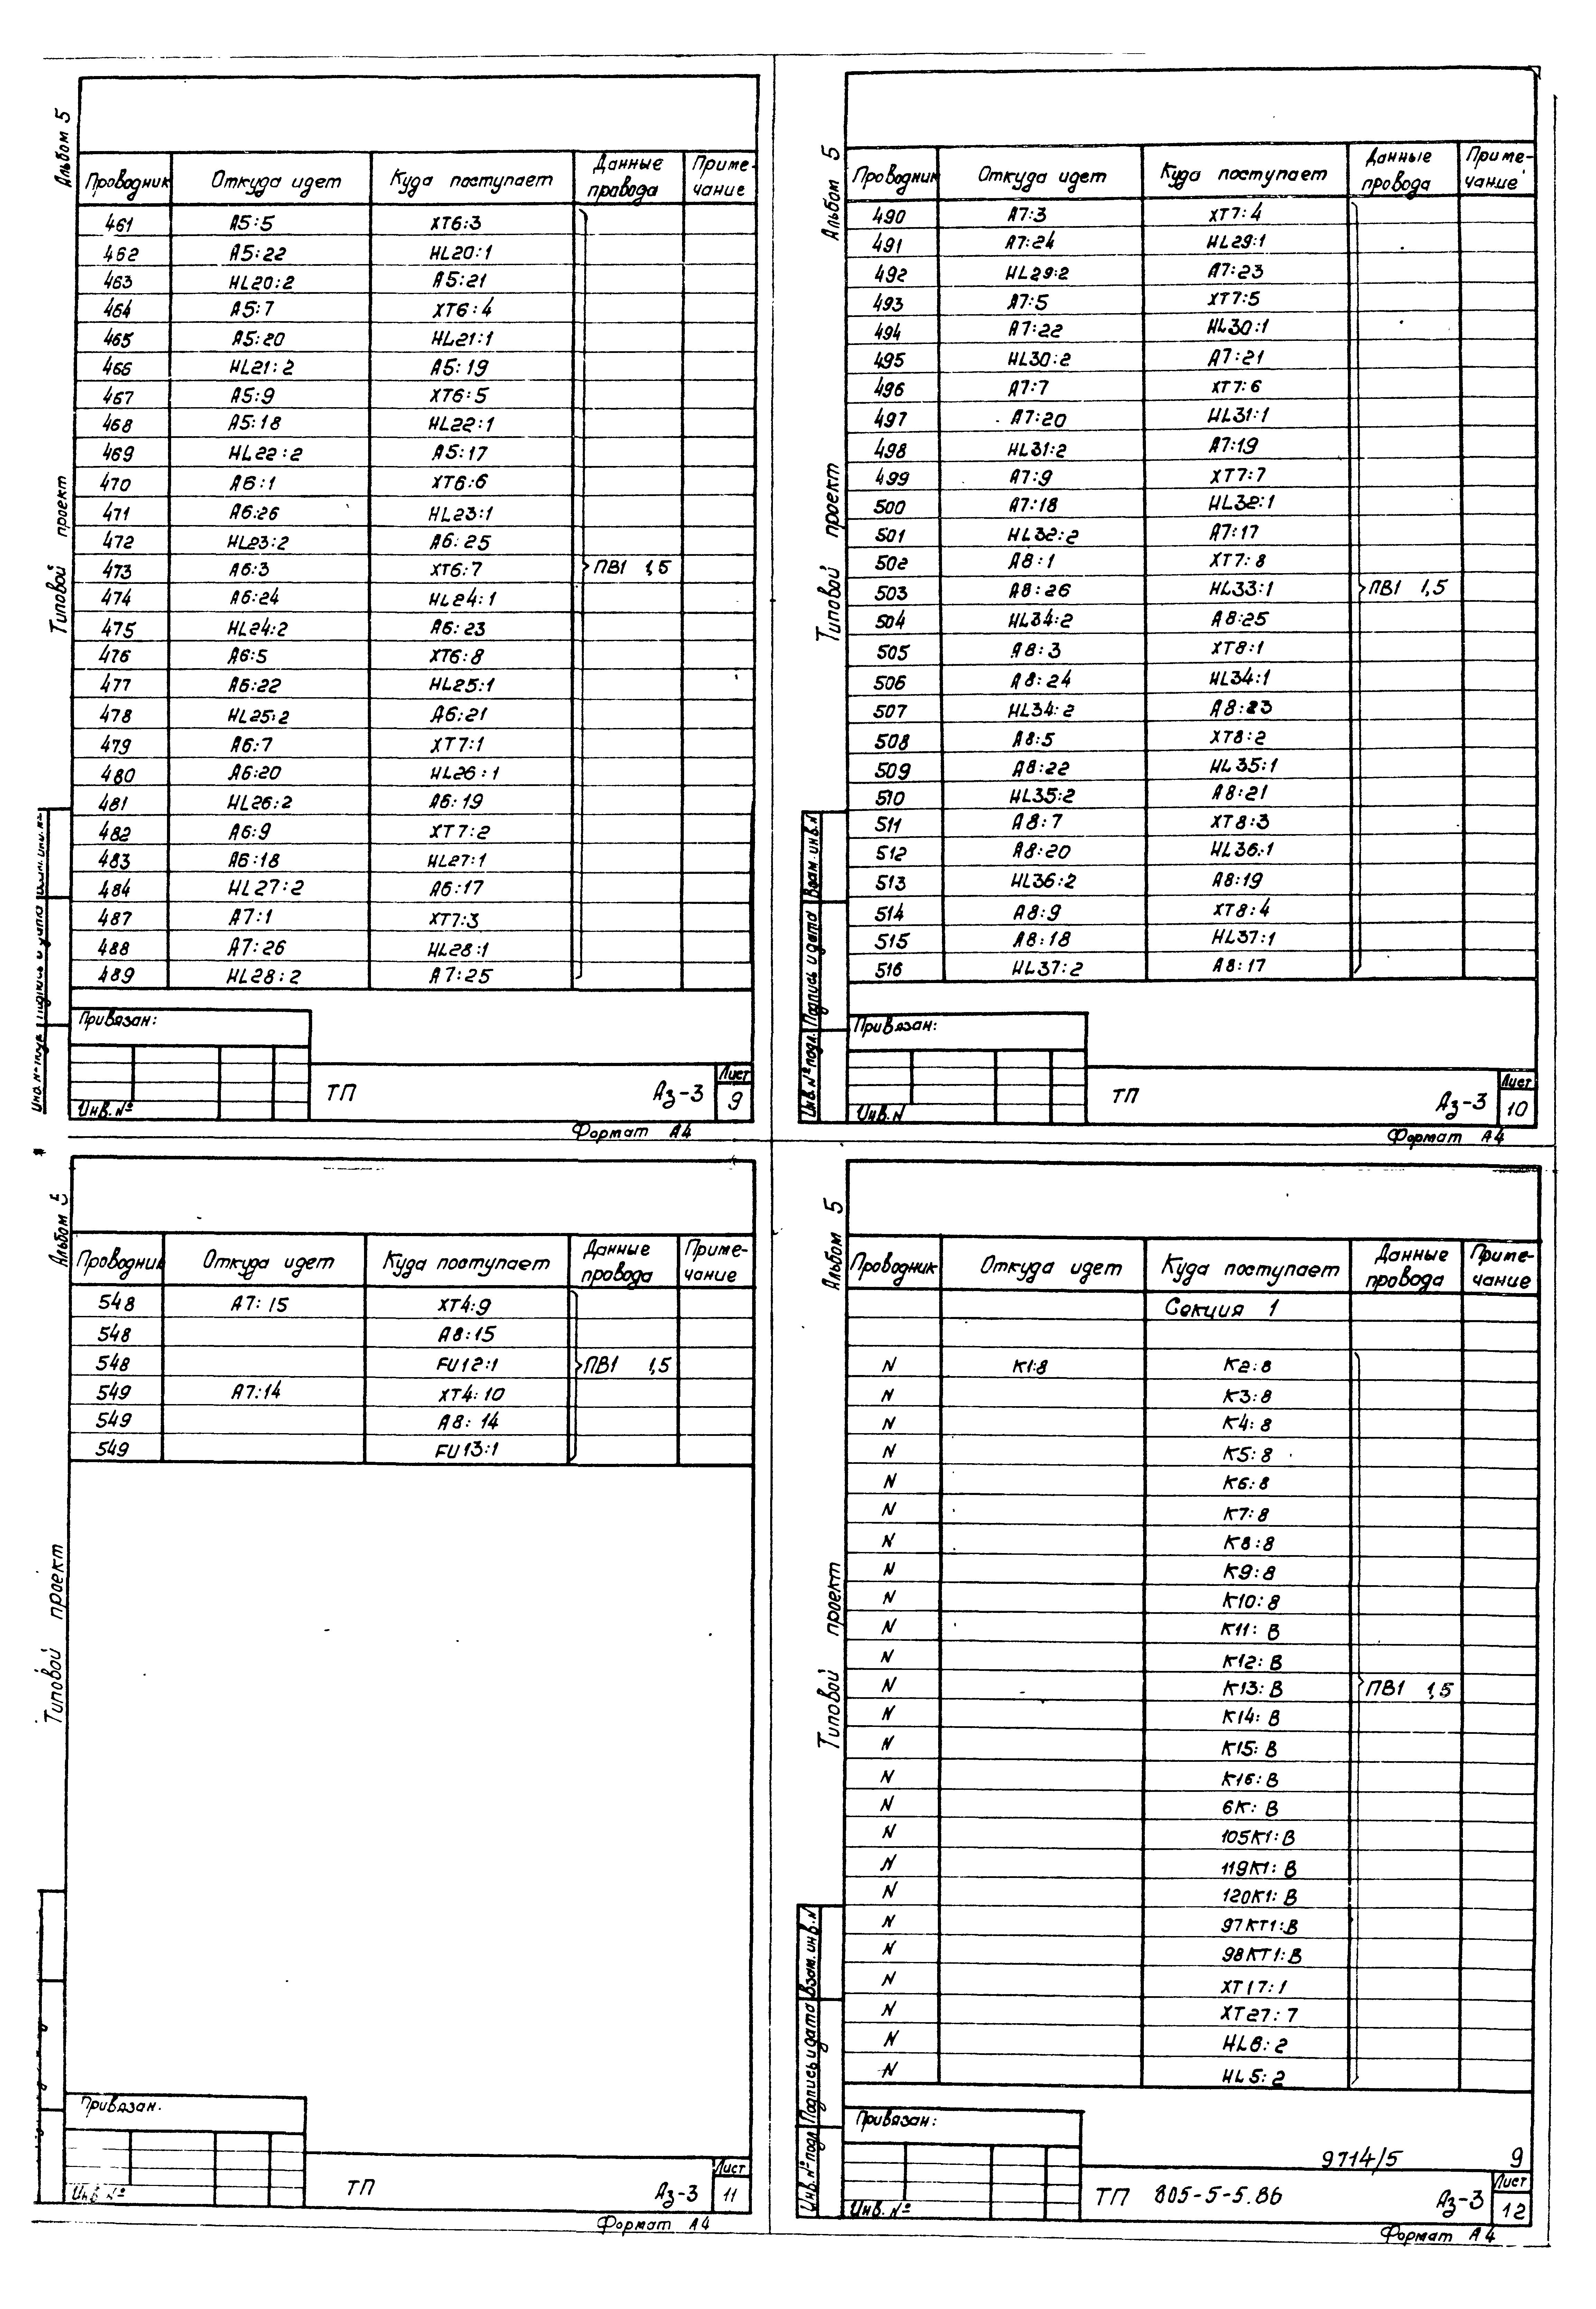 Альбом 5
Типовой проект
Проводник Откуда идет Куда поступает Данные провода Приме-чание
461 А5:5 ХТ6:3
462 А5:22 HL20:1
463 HL20:2 А5:21
464 А5:7 ХТ6:4
465 А5:20 HL21:1
466 HL21:2 А5:19
467 А5:9 ХТ6:5
468 А5:18 HL22:1
469 HL22:2 А5:17
470 А6:1 ХТ6:6
471 А6:26 HL23:1
472 HL23:2 А6:25
473 А6:3 ХТ6:7 ПВ1 1,5
474 А6:24 HL24:1
475 HL24:2 А6:23
476 А6:5 ХТ6:8
477 А6:22 HL25:1
478 HL25:2 А6:21
479 А6:7 ХТ7:1
480 А6:20 HL26:1
481 HL26:2 А6:19
482 А6:9 ХТ7:2
483 А6:18 HL27:1
484 HL27:2 А6:17
487 А7:1 ХТ7:3
488 А7:26 HL28:1
489 HL28:2 А7:25
Привязан:
Инв. №
ТП Аз-3 Лист 9
Формат А4
Альбом 5
Типовой проект
Проводник Откуда идет Куда поступает Данные провода Приме-чание
490 А7:3 ХТ7:4
491 А7:24 HL29:1
492 HL29:2 А7:23
493 А7:5 ХТ7:5
494 А7:22 HL30:1
495 HL30:2 А7:21
496 А7:7 ХТ7:6
497 А7:20 HL31:1
498 HL31:2 А7:19
499 А7:9 ХТ7:7
500 А7:18 HL32:1
501 HL32:2 А7:17
502 А8:1 ХТ7:8
503 А8:26 HL33:1 ПВ1 1,5
504 HL34:2 А8:25
505 А8:3 ХТ8:1
506 А8:24 HL34:1
507 HL34:2 А8:23
508 А8:5 ХТ8:2
509 А8:22 HL35:1
510 HL35:2 А8:21
511 А8:7 ХТ8:3
512 А8:20 HL36:1
513 HL36:2 А8:19
514 А8:9 ХТ8:4
515 А8:18 HL37:1
516 HL37:2 А8:17
Инв. № подл. Подпись и дата Взам. инв. N
Привязан:
Инв. N
ТП Аз-3 Лист 10
Формат А4
Альбом 5
Типовой проект
Проводник Откуда идет Куда поступает Данные провода Приме-чание
548 А7:15 ХТ4:9
548 А8:15
548 FU12:1 ПВ1 1,5
549 А7:14 ХТ4:10
549 А8:14
549 FU13:1
Привязан.
Инв. №
ТП Аз-3 Лист 11
Формат А4
Альбом 5
Типовой проект
Проводник Откуда идет Куда поступает Данные провода Приме-чание
Секция 1
N К1:8 К2:8
N К3:8
N К4:8
N К5:8
N К6:8
N К7:8
N К8:8
N К9:8
N К10:8
N К11:В
N К12:В
N К13:В ПВ1 1,5
N К14:В
N К15:В
N К16:В
N 6К:В
N 105К1:В
N 119К1:В
N 120К1:В
N 97КТ1:В
N 98КТ1:В
N ХТ17:1
N ХТ27:7
N HL6:2
N HL5:2
Инв. № подл Подпись и дата Взам. инв. N
Привязан:
Инв. №
9714/5 9
ТП 805-5-5.86 Аз-3 Лист 12
Формат А4